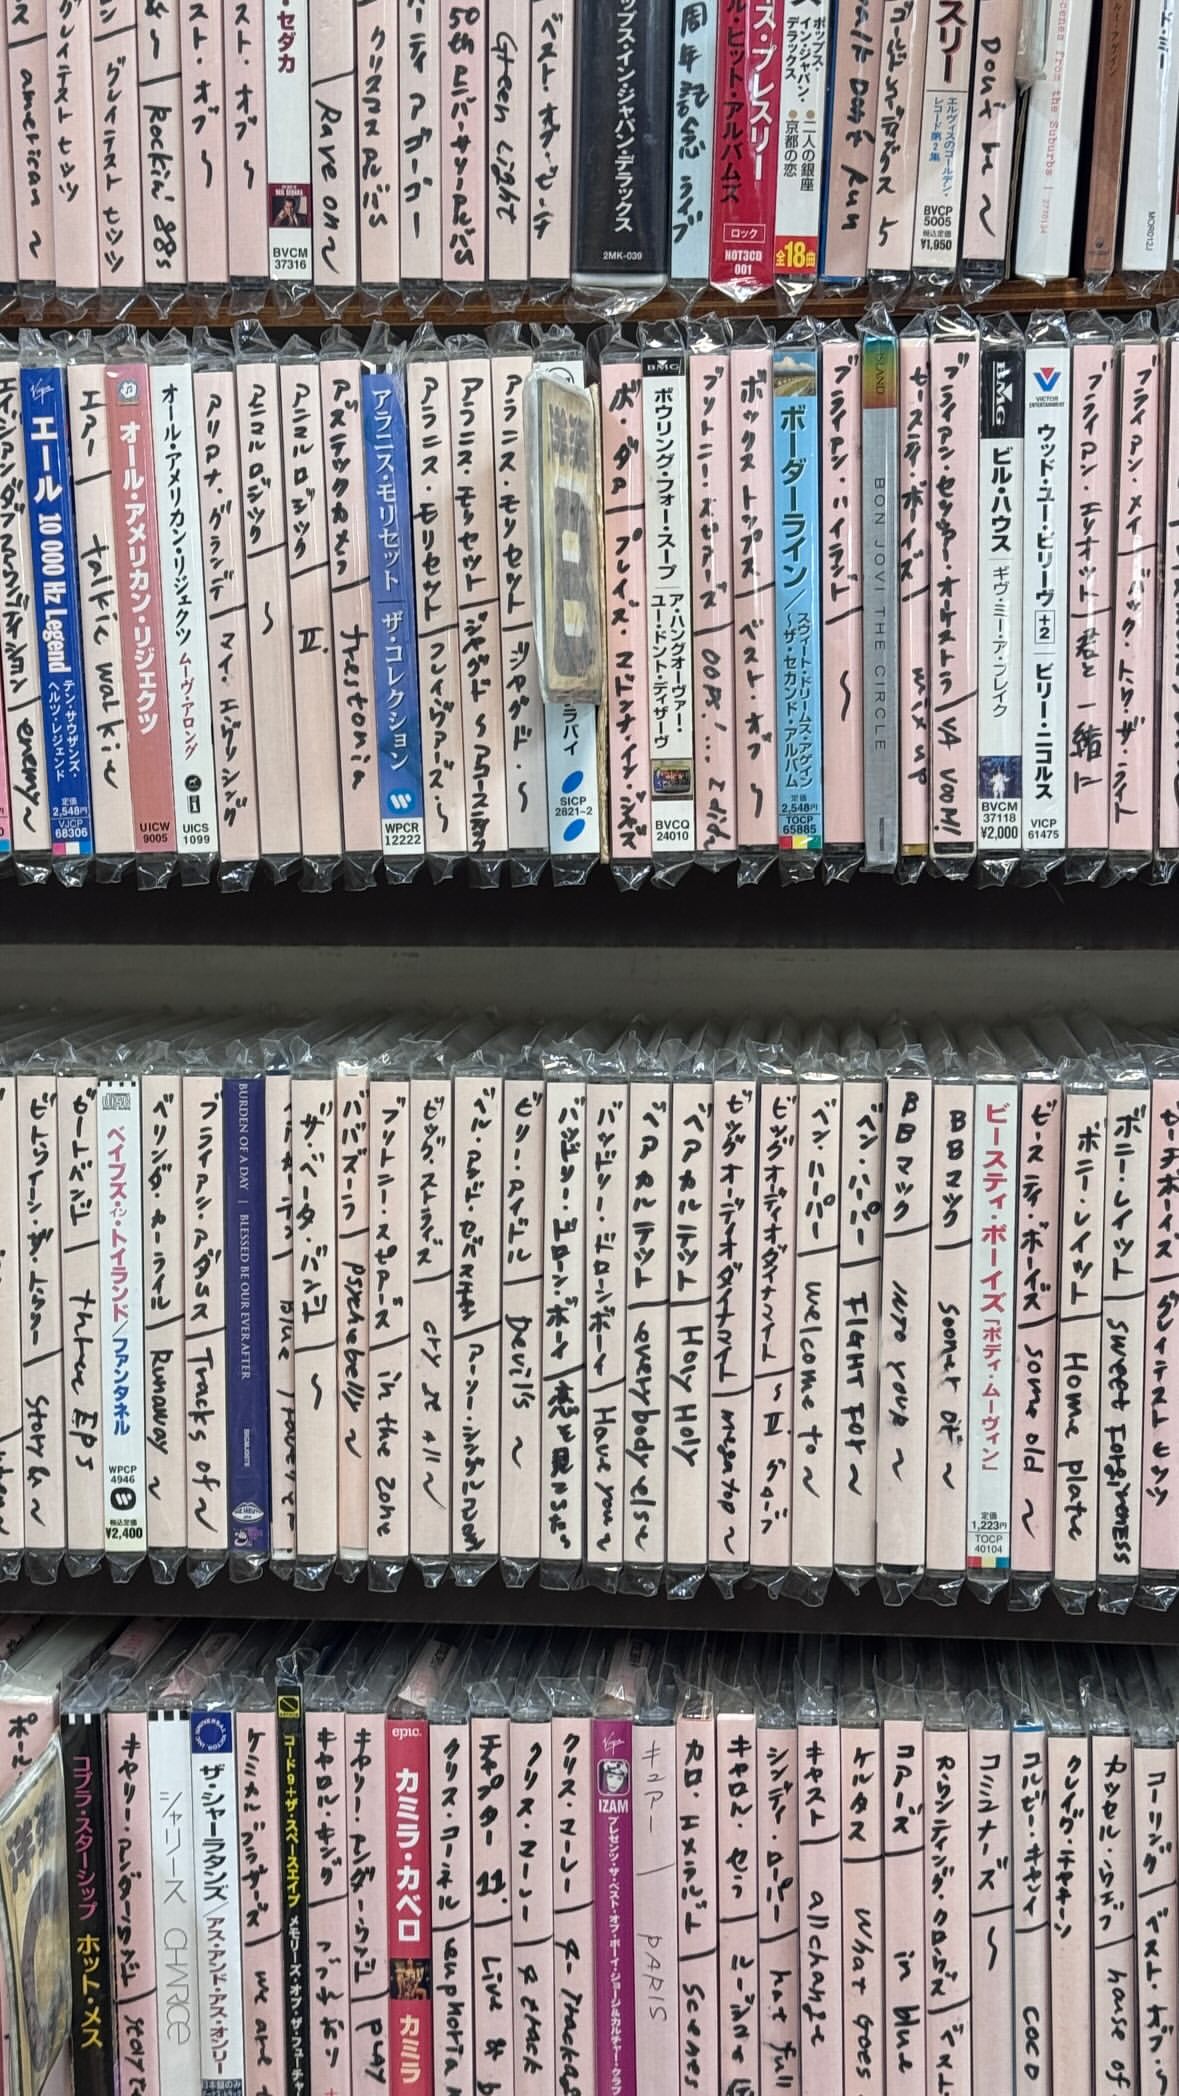 american 〜
グレイテスト ヒッツ
グレイテスト ヒッツ
Rockin' 88s
スト・オブ 〜
スト・オブ 〜
・セダカ
BVCM
37316
Rave on 〜
クリスマス アルバム
ーティ ア ゴーゴー
50th アニバーサリーアルバム
Green Light
ベスト・オブ・ビーチ
ップス・イン・ジャパン・デラックス
2MK-039
周年記念 ライブ
ス・プレスリー
ル・ヒット・アルバムズ
ロック
HOT3CD
001
ポップス・
イン・ジャパン・
デラックス
●二人の銀座
●京都の恋
全18曲
Don't Run
ゴールド
5
スリー
エルヴィスのゴールデン・
レコード第2集
BVCP
5005
税込定価
¥1,950
Don't be 〜
from the Suburbs
MOR012J
ード・ミー
enemy 〜
Virgin
エール 10 000 Hz Legend
テン・サウザンズ・
ヘルツ・レジェンド
定価
2,548円
VJCP
68306
エアー / talkie walkie
オール・アメリカン・リジェクツ
UICW
9005
オール・アメリカン・リジェクツ ムーヴ・アロング
UICS
1099
アリアナ・グランデ / マイ・エヴリシング
アニマルロジック / 〜
アニマルロジック / II.
アズテックカメラ / frestonia
アラニス・モリセット ザ・コレクション
WPCR
12222
アラニス・モリセット / フレイヴァーズ・〜
アラニス・モリセット / ジャグド 〜 アコースティック
アラニス・モリセット / ジャグド・〜
洋楽
B
ラバイ
SICP
2821~2
ボ・ダー / プレイズ・マドンナ・イン・ジャズ
BMG
ボウリング・フォー・スープ
ア・ハングオーヴァー・
ユー・ドント・ディザーヴ
BVCQ
24010
ブリトニー・スピアーズ / oops!... I did
ボックストップス / ベスト・オブ 〜
ボーダーライン/
スウィート・ドリームス・アゲイン
〜ザ・セカンド・アルバム
定価
2,548円
TOCP
65885
ブライアン・ハイランド / 〜
ISLAND
BON JOVI THE CIRCLE
ビースティ・ボーイズ / mix up
ブライアン・セッツァー・オーケストラ / '64 VooM!
BMG
ビル・ハウス
ギヴ・ミー・ア・ブレイク
BVCM
37118
¥2,000
VICTOR
ENTERTAINMENT
ウッド・ユー・ビリーヴ +2 ビリー・ニコルス
VICP
61475
ブライアン・エリオット / 君と一緒に
ブライアン・メイ / バック・トゥ・ザ・ライト
ビトウィーン・ザ・トゥリー / Story &〜
ビートバンド / three EPs
ベイブズ・イン・トイランド/ファンタネル
WPCP
4946
税込定価
¥2,400
ベリンダ・カーライル / Runaway 〜
ブライアン・アダムス / Tracks of 〜
BURDEN OF A DAY | BLESSED BE OUR EVER AFTER
ザ・ベータ・バンド / 〜
ババズーラ / psychebelly 〜
ブリトニー・スピアーズ / in the zone
ビッグ・ストライズ / cry it all 〜
ベル・アンド・セバスチャン / アーリー・シングル
ビリー・アイドル / Devil's 〜
バッドリー・ドローン・ボーイ / 恋を見ンした
バッドリー・ドローンボーイ / Have you 〜
ベアカルテット / everybody else
ベアカルテット / Holy Holy
ビッグオーディオダイナマイト / megatop 〜
ビッグオーディオダイナマイト 〜 II. グローブ
ベン・ハーパー / welcome to 〜
ベン・ハーパー / FIGHT FOR 〜
BBマック / INTO YOUR 〜
BBマック / sooner or 〜
ビースティ・ボーイズ「ボディ・ムーヴィン」
定価
1,223円
TOCP
40104
ビースティ・ボーイズ / some old 〜
ボニー・レイット / Home plate
ボニー・レイット / sweet Forgiveness
ビーチボーイズ / グレイテスト ヒッツ
ポール
洋楽
コブラ・スターシップ ホット・メス
キャリー・アンダーウッド / story
シャリース CHARICE
ザ・シャーラタンズ/アス・アンド・アス・オンリー
日本盤のみ
ケミカルブラザーズ / we are
コード9+ザ・スペースエイプ メモリーズ・オブ・ザ・フューチャ
キャロル・キング / つづれおり
キャリー・アンダーウッド / play
epic.
カミラ・カベロ
カミラ
クリス・コーネル / euphoria
チャプター 11. / Live &
クリス・マーレー / 4 track
クリス・マーレー / 4-Tracks
Virgin
IZAM
プレゼンツ・ザ・ベスト・オブ・ボーイ・ジョージ&カルチャー・クラブ
キュアー / PARIS
カロ・エメラルド / scenes
キャロル・セラ / ルージュ
シンディ・ローパー / hat full
キャスト / all change
ケルタス / what goes
コアーズ / in blue
カウンティング・クロウズ / ベスト
コミュナーズ / 〜
コルビー・キャレイ / coco
クレイグ・チャキーン
カッセル・ウェブ / house of
コーリング / ベスト・オブ・〜